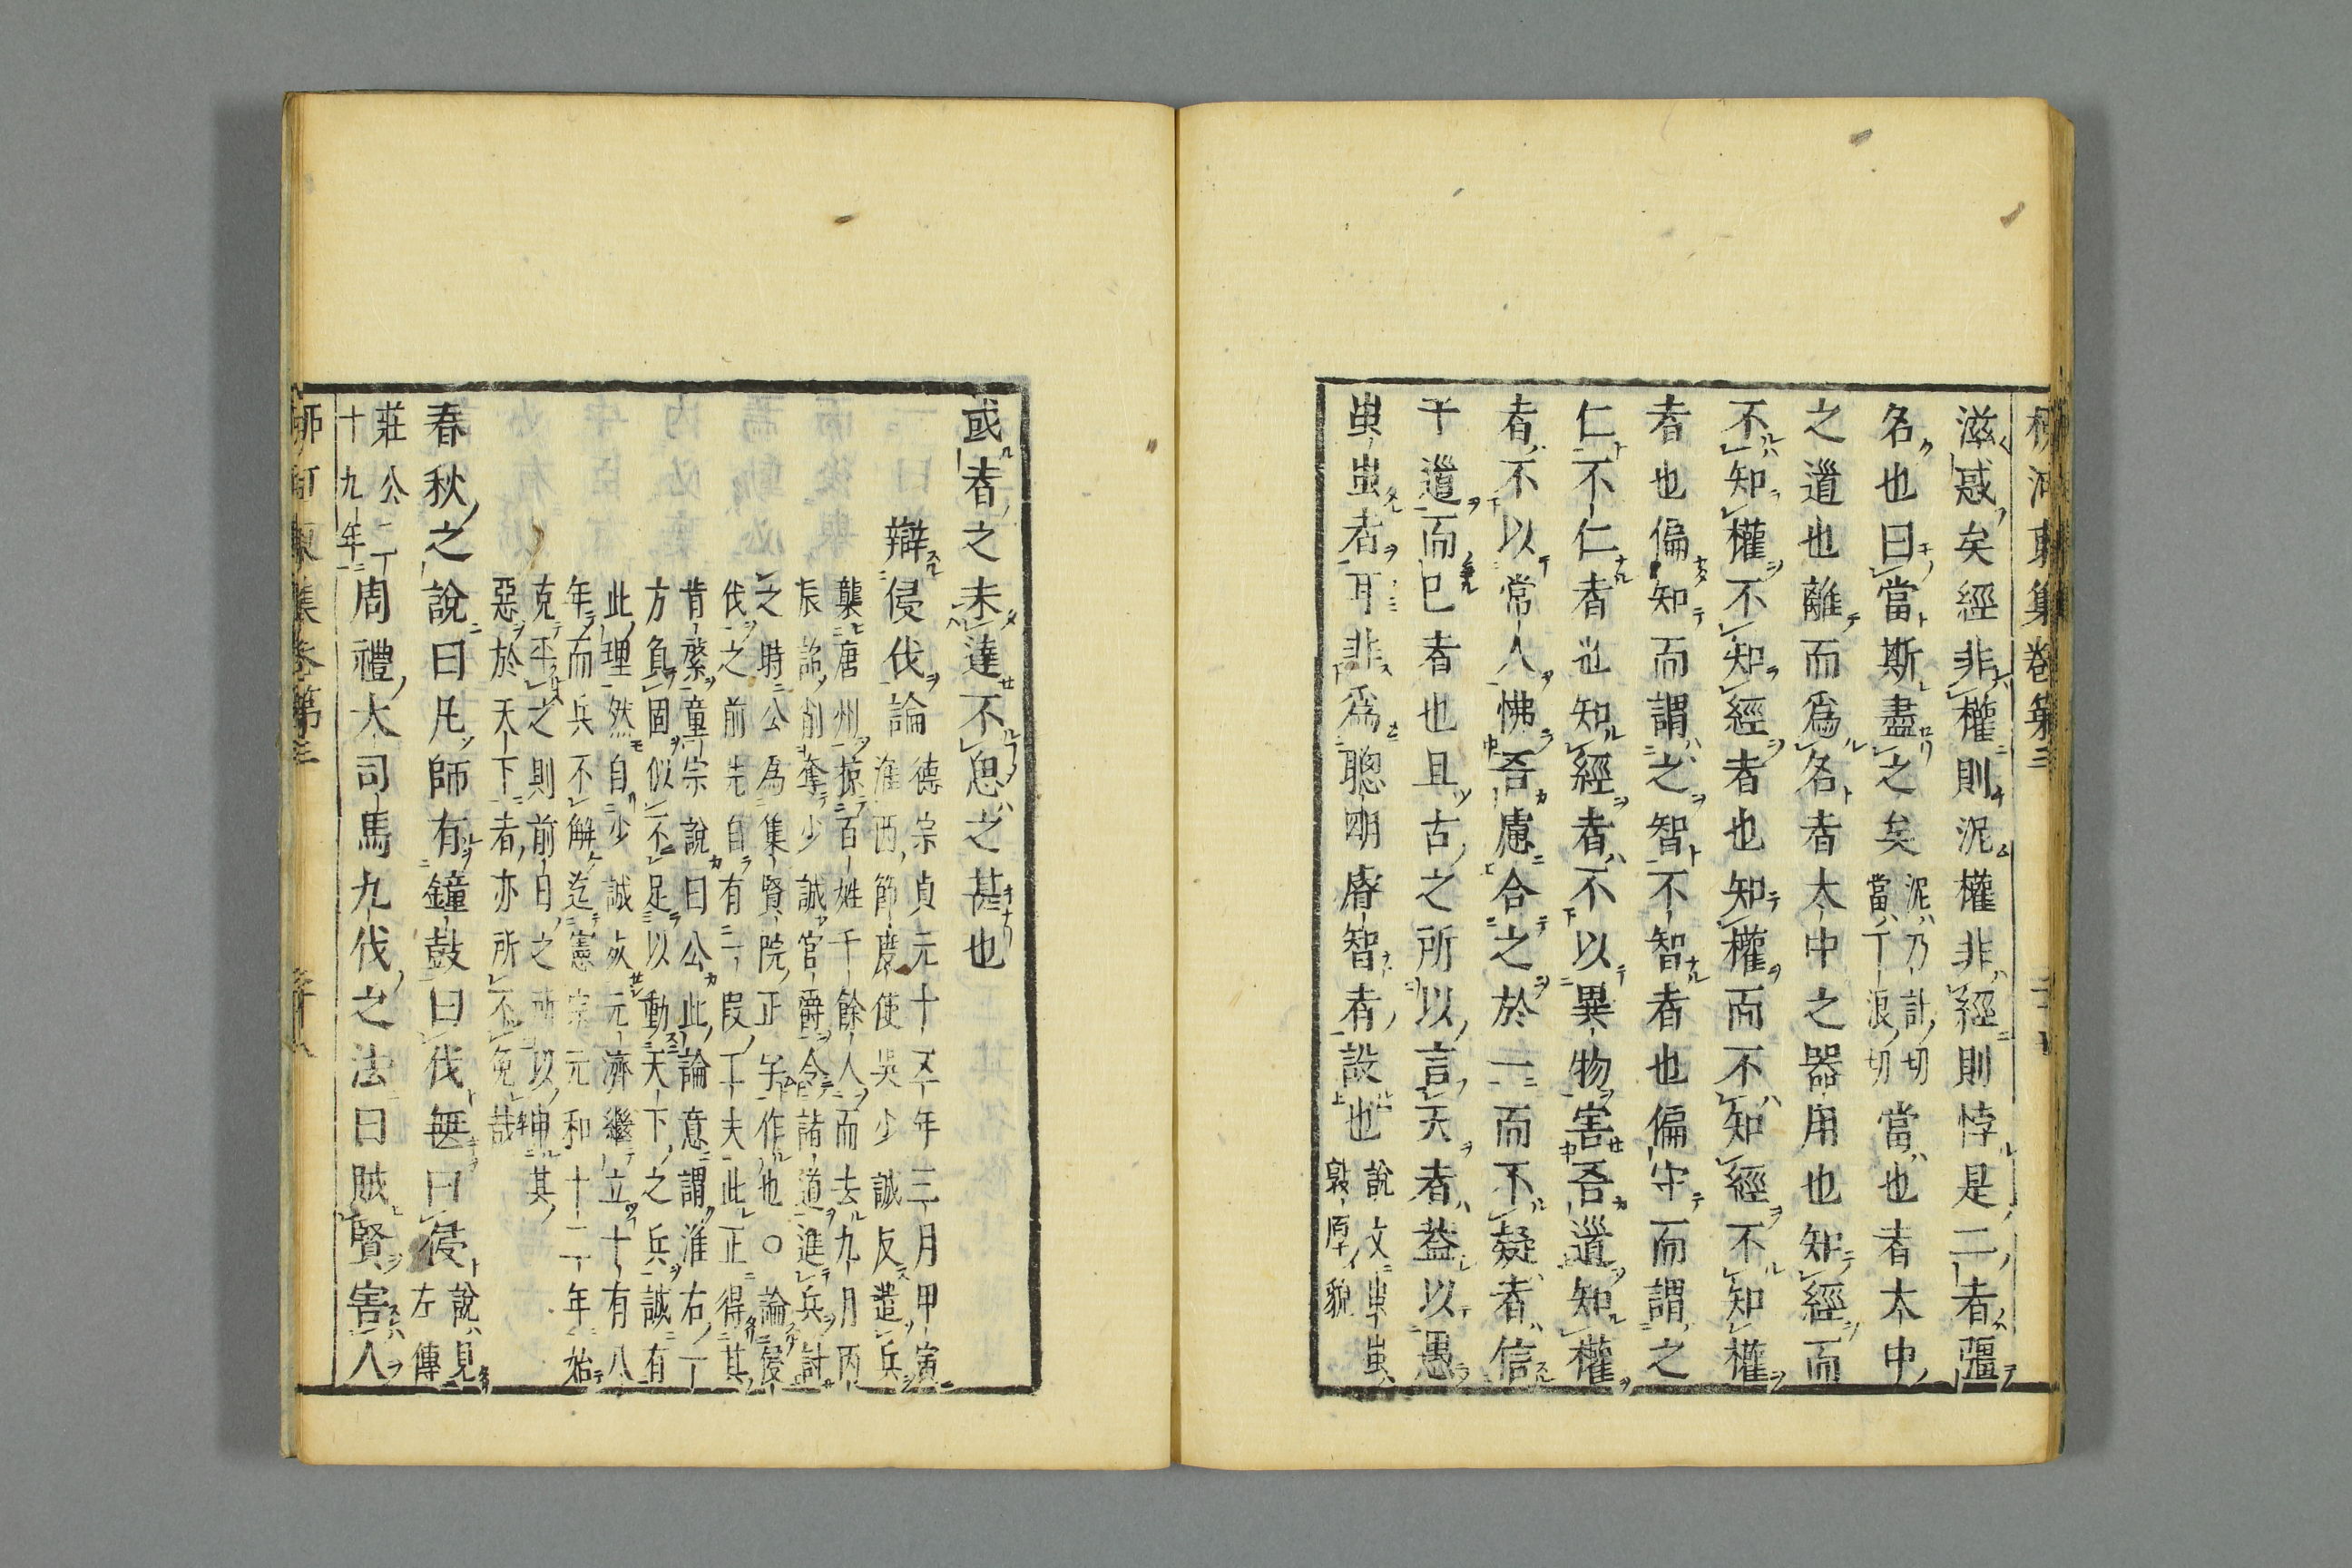 柳河東集卷第三
滋惑矣經非權則泥權非經則悖是二者彊
名也曰當斯盡之矣泥乃計切當丁浪切當也者大中
之道也離而爲名者大中之器用也知經而
不知權不知經者也知權而不知經不知權
者也偏知而謂之智不智者也偏守而謂之
仁不仁者也知經者不以異物害吾道知權
者不以常人怫吾慮合之於一而不疑者信
于道而已者也且古之所以言天者蓋以愚
蚩蚩者耳非爲聰明睿智者設也說文蚩蚩敦厚貌
或者之未達不思之甚也
辯侵伐論德宗貞元十五年三月甲寅
淮西節度使吳少誠反遣兵
襲唐州掠百姓千餘人而去九月丙
辰詔削奪少誠官爵令諸道進兵討
之時公為集賢院正字作也○論侵
伐之前先自有二叚工夫此正得其
肯綮童宗說曰公此論意謂淮右一
方負固似不足以動天下之兵誠有
此理然自少誠灰元濟繼立十有八
年而兵不解迄憲宗元和十二年始
克平之則前日之所以伸其
惡於天下者亦所不免哉
春秋之說曰凡師有鐘鼓曰伐無曰侵說見左傳
莊公二十九年周禮大司馬九伐之法曰賊賢害人
柳河東集卷第三